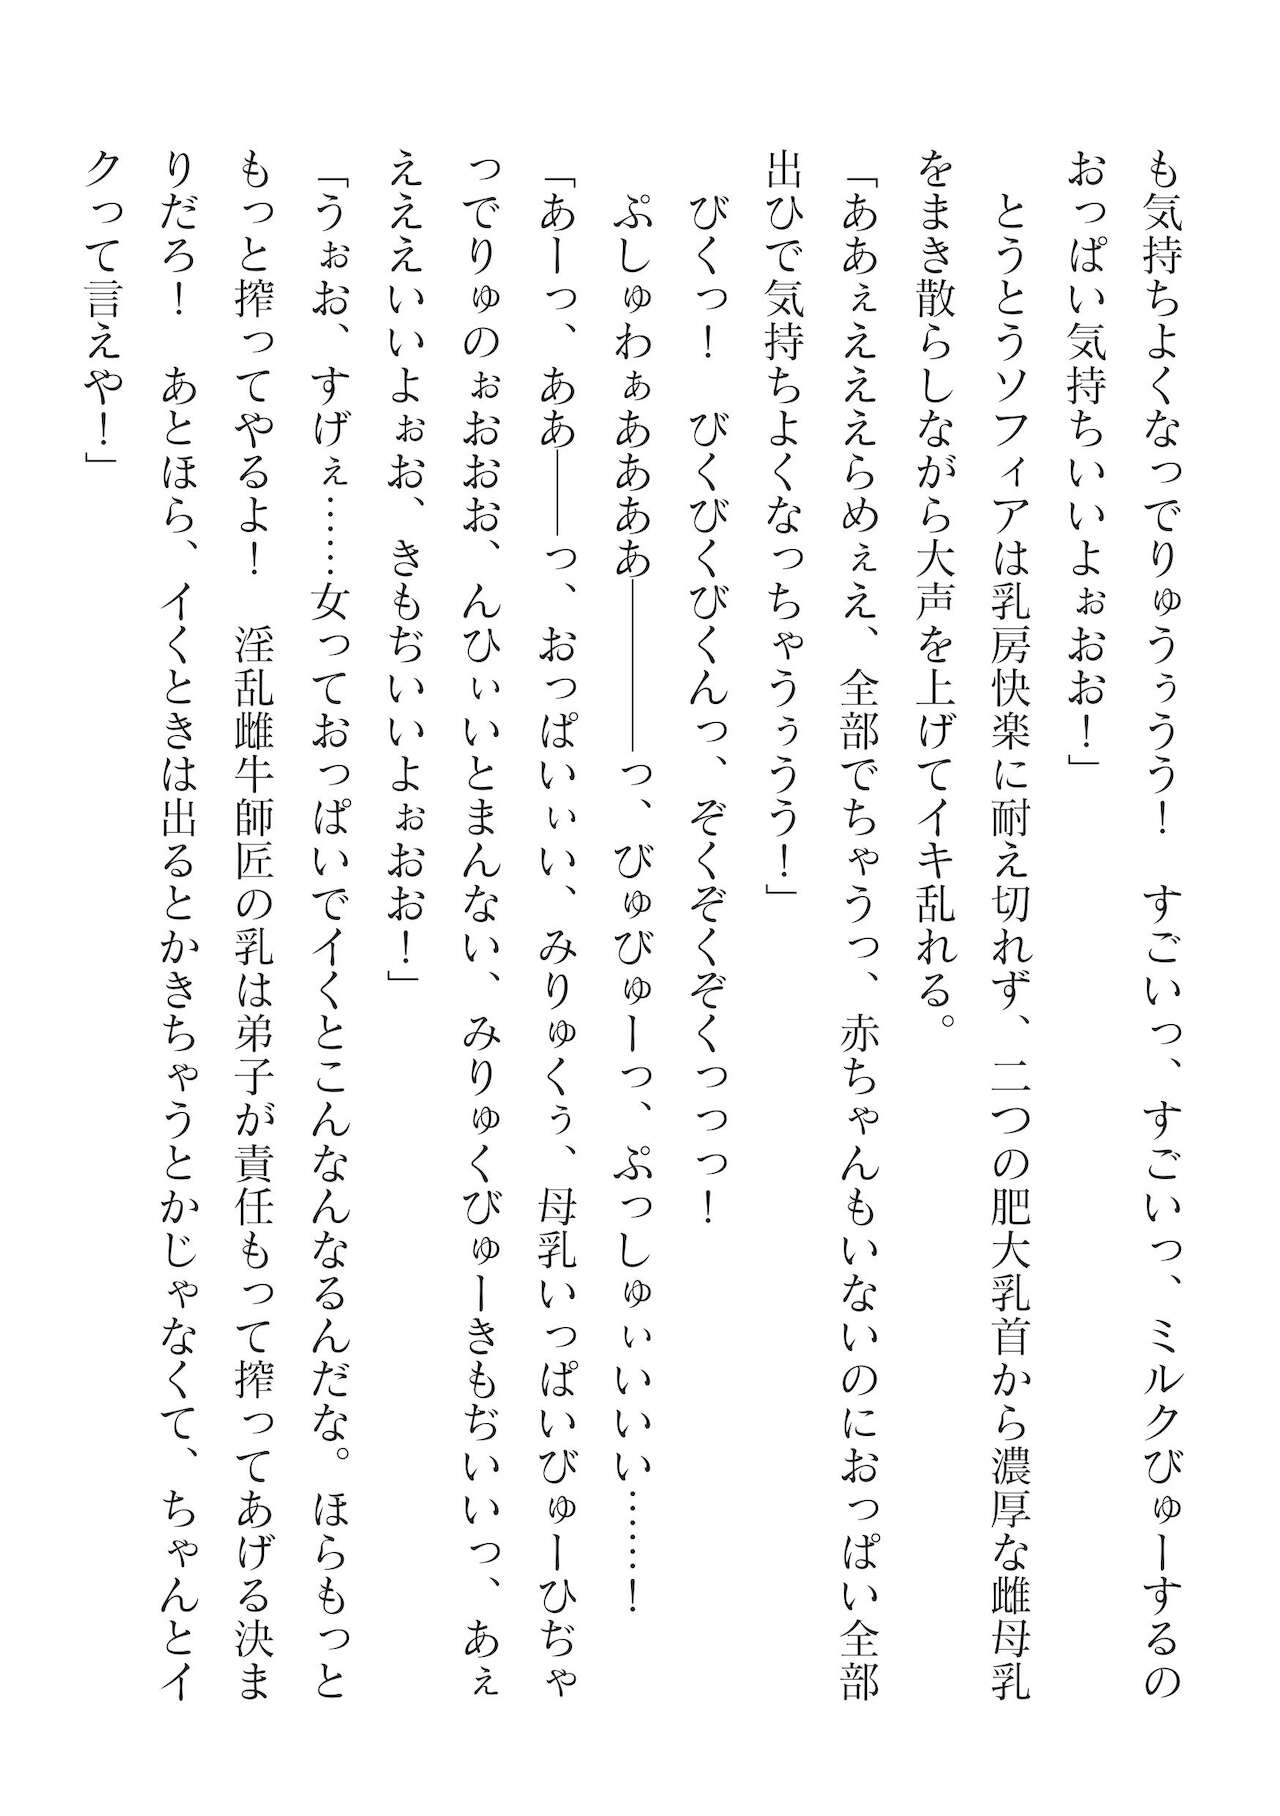 も気持ちよくなっでりゅうぅうう！　すごいっ、すごいっ、ミルクびゅーするの
おっぱい気持ちいいよぉおお！」
　とうとうソフィアは乳房快楽に耐え切れず、二つの肥大乳首から濃厚な雌母乳
をまき散らしながら大声を上げてイキ乱れる。
「ああぇえええらめぇえ、全部でちゃうっ、赤ちゃんもいないのにおっぱい全部
出ひで気持ちよくなっちゃうぅうう！」
　びくっ！　びくびくびくんっ、ぞくぞくぞくっっっ！
　ぷしゅわぁああああ――――っ、びゅびゅーっ、ぷっしゅぃいいい……！
「あーっ、ああ――っ、おっぱいぃい、みりゅくぅ、母乳いっぱいびゅーひぢゃ
っでりゅのぉおおお、んひぃいとまんない、みりゅくびゅーきもぢいいっ、あぇ
えええいいよぉお、きもぢいいよぉおお！」
「うぉお、すげぇ……女っておっぱいでイくとこんなんなるんだな。ほらもっと
もっと搾ってやるよ！　淫乱雌牛師匠の乳は弟子が責任もって搾ってあげる決ま
りだろ！　あとほら、イくときは出るとかきちゃうとかじゃなくて、ちゃんとイ
クって言えや！」